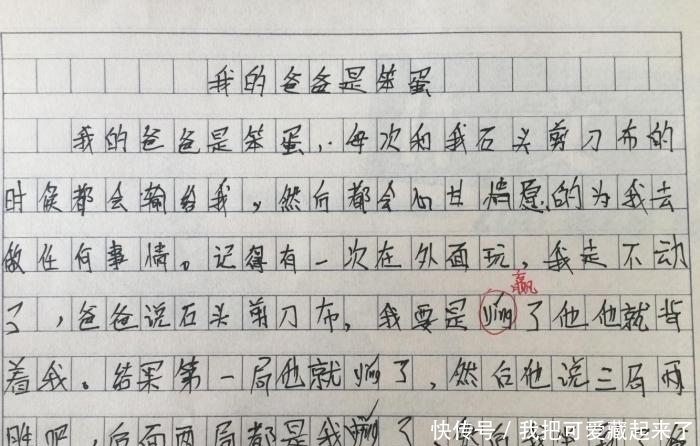 我的爸爸是笨蛋
我的爸爸是笨蛋,每次和我石头剪刀布的
时候都会输给我,然后都会心甘情愿的为我去
做任何事情。记得有一次在外面玩,我走不动
赢
了,爸爸说石头剪刀布,我要是ying了他他就背
着我。结果第一局他就ying了,然后他说三局两
胜吧,后面两局都是我ying了
快传号/我把可爱藏起来了